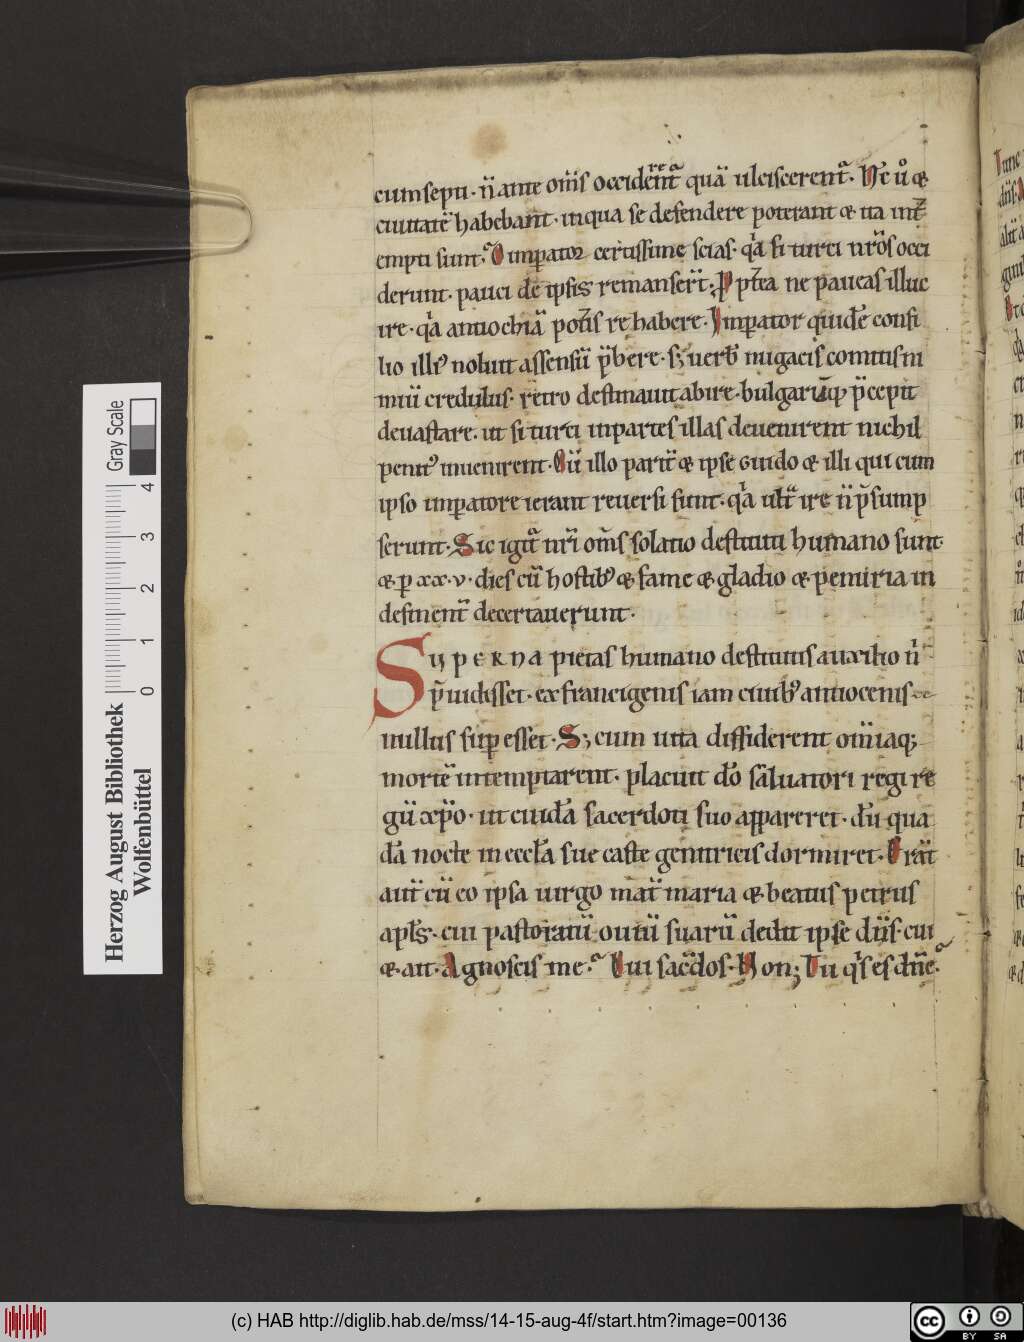 cumsepti· n̄ ante om̄s occiderent᷑ quā ulciscerent᷑· Nec ů &
ciuitatē habebant· in qua se defendere poterant & ita int̄
empti sunt· O imp̲ator certissime scias· q̇a si turci nr̄os occi
derunt· pauci de ipsis remanser̄t· P pt̄ea ne paucas illuc
ire· q̇a antiochiā pot̄is rehabere· Imp̲ator quidē consi
lio illiꝰ noluit assensū p̄bere· sꝫ uerb̄ nugacis comitis ni
miū credulus· retro destinauit abire· bulgariāqꝫ p̄cepit
deuastare· ut si turci in partes illas deuenirent nichil
penitꝰ inuenirent· Cū illo parit̄ & ipse Guido & illi qui cum
ipso imp̲atore ierant reuersi sunt· q̇a ult̄ ire n̄ p̄sump
serunt· Sic igit᷑ nr̄i om̄s solatio destituti humano sunt
& p̲ xx·v· dies cū hostibꝰ & fame & gladio & penuria in
desinent̄ decertauerunt·
SUPERNA pietas humano destitutis auxilio n̄
p̄uidisset· ex francigenis iam ciuibꝰ antiocenis
nullus sup̲esset· Sꝫ cum uita diffiderent om̄iaqꝫ
mortē intemptarent· placuit dō saluatori regi re
gū xp̄o· ut cuidā sacerdoti suo appareret· dū qua
dā nocte in eccl̄a sue caste genitricis dormiret· Erāt
aut̄ cū eo ipsa uirgo mat̄ maria & beatus petrus
apl̄s· cui pastoratū ouiū suarū dedit ipse dn̄s· cui
& ait· Agnoscis me· Cui sac̄dos· Non; Tu q̇s es dn̄e·
Herzog August Bibliothek
Wolfenbüttel
Gray Scale
0 1 2 3 4
(c) HAB http://diglib.hab.de/mss/14-15-aug-4f/start.htm?image=00136
cc BY SA